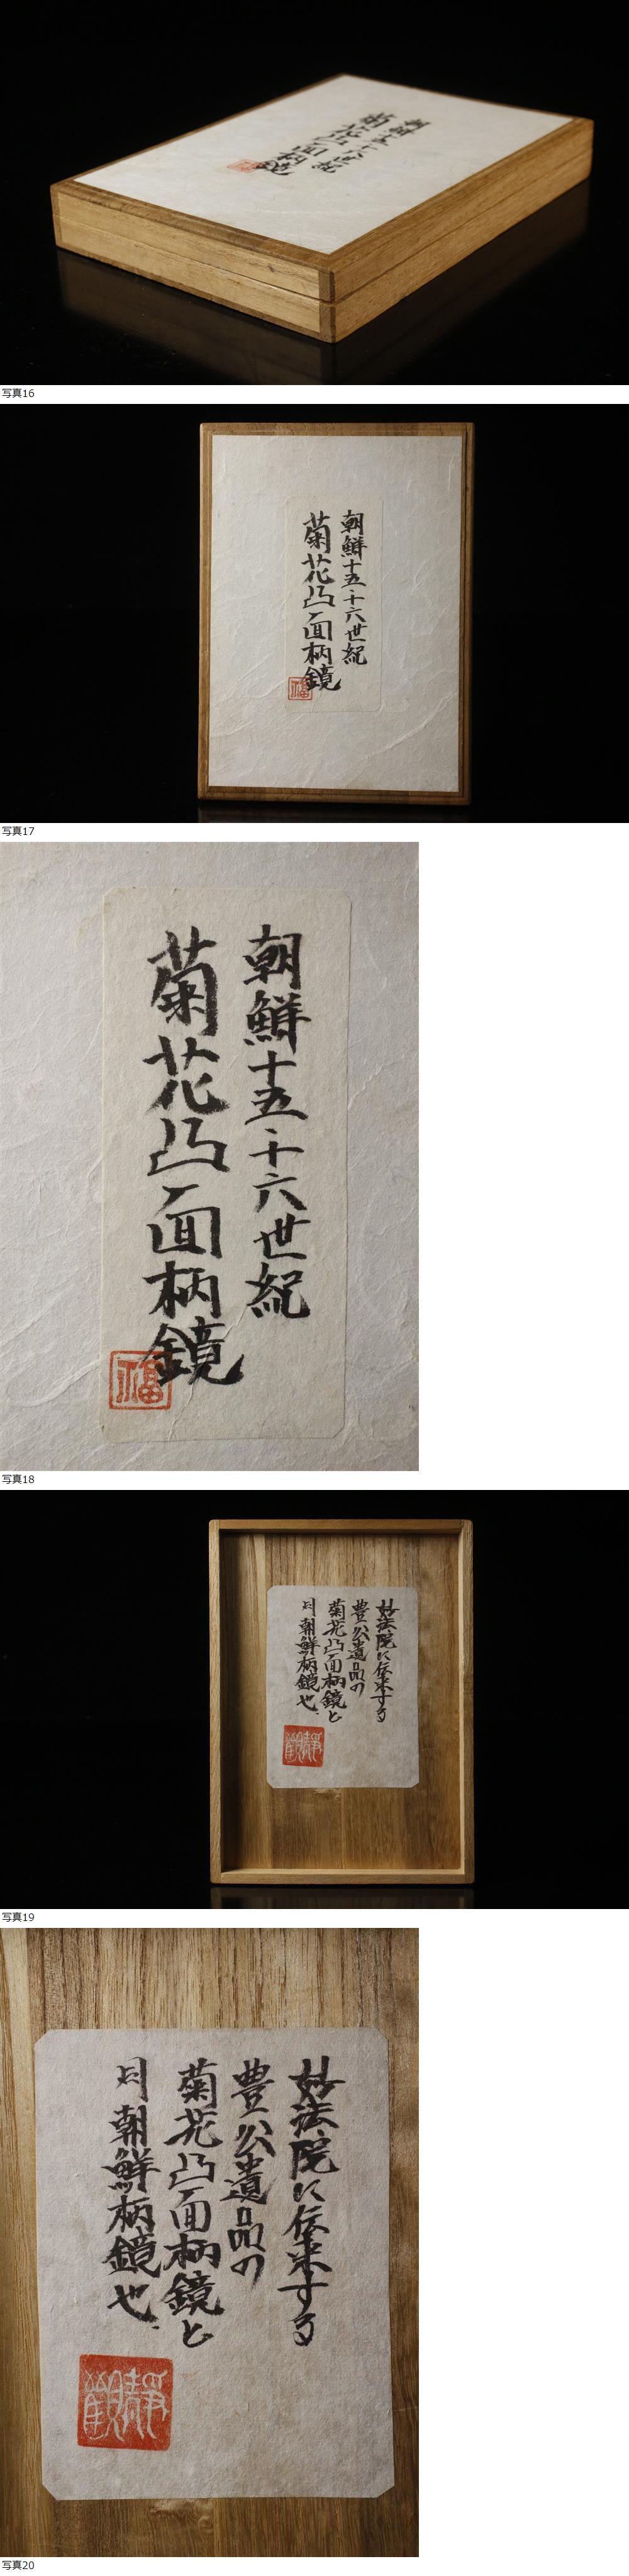 朝鮮十五・十六世紀
菊花凸面柄鏡
福
写真16
朝鮮十五・十六世紀
菊花凸面柄鏡
福
写真17
朝鮮十五・十六世紀
菊花凸面柄鏡
福
写真18
妙法院に伝来する
豊公遺品の
菊花凸面柄鏡と
同朝鮮柄鏡也
靜觀
写真19
妙法院に伝来する
豊公遺品の
菊花凸面柄鏡と
同朝鮮柄鏡也
靜觀
写真20